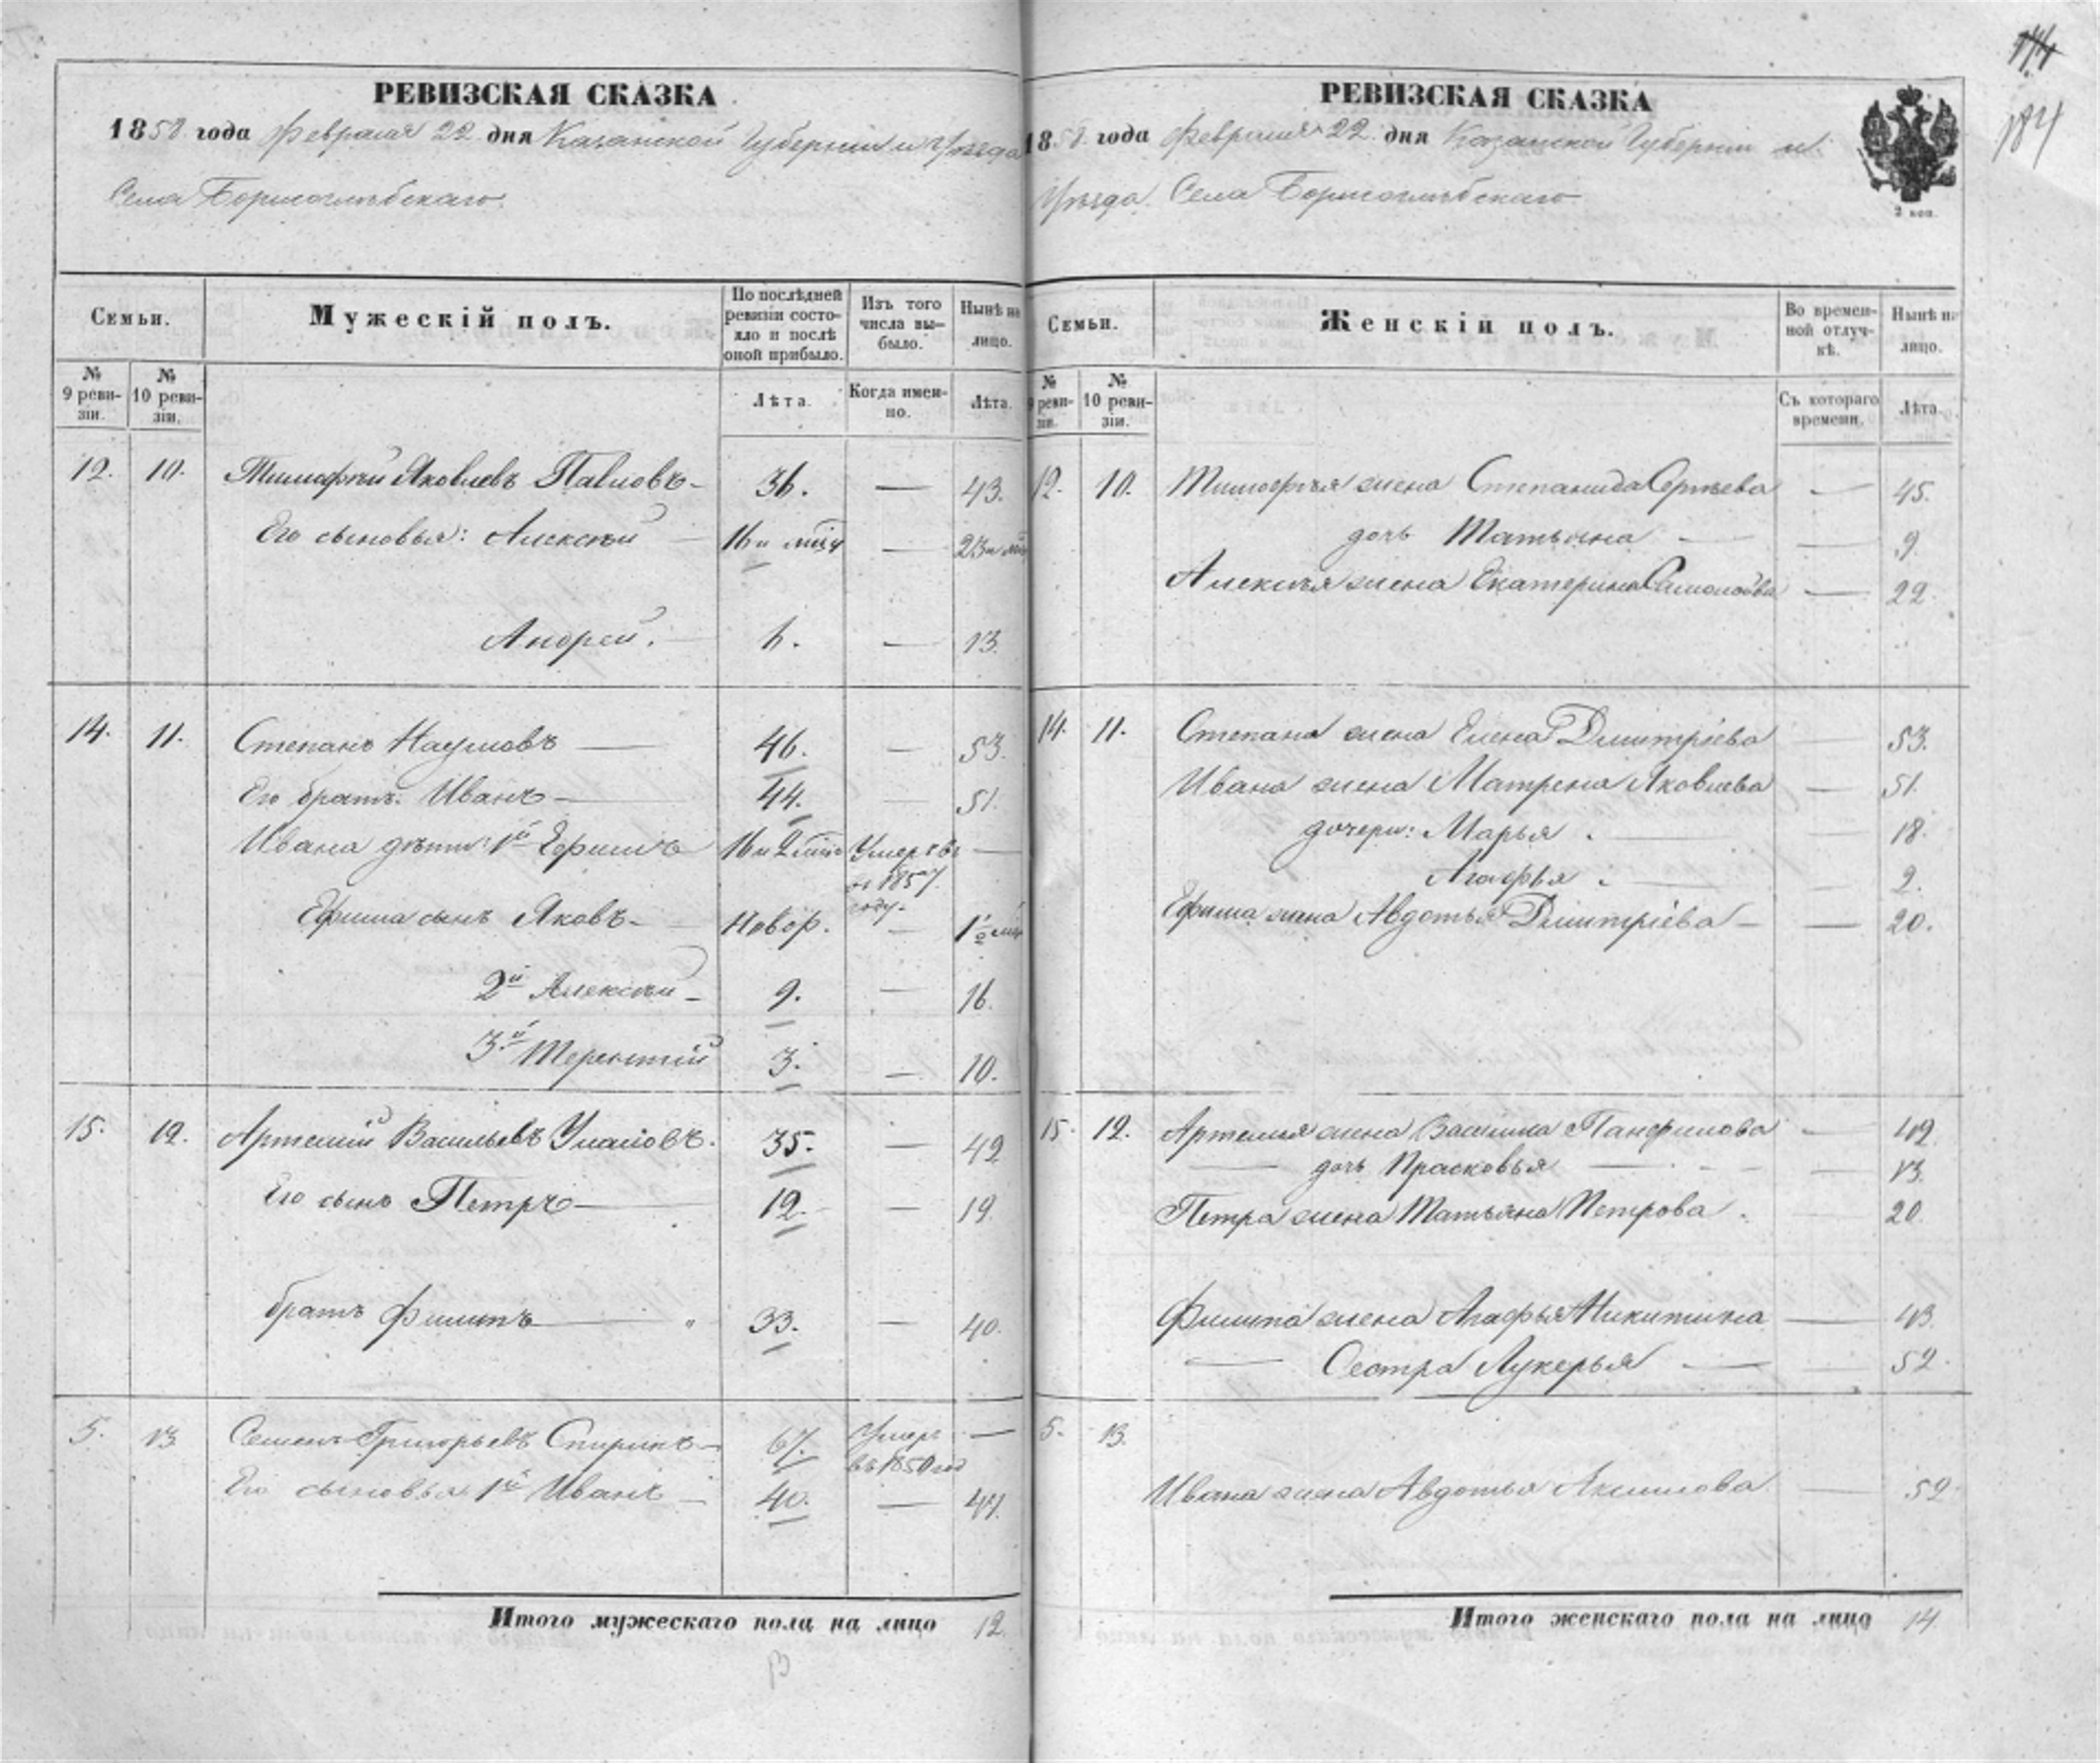 174
184
РЕВИЗСКАЯ СКАЗКА
1858 года Февраля 22 дня Казанской Губерніи и Уѣзда
Села Борисоглѣбскаго
Семьи.
Мужескій полъ.
По послѣдней ревизіи состояло и послѣ оной прибыло.
Изъ того числа выбыло.
Нынѣ на лицо.
№ 9 ревизіи.
№ 10 ревизіи.
Лѣта.
Когда именно.
Лѣта.
12. 10. Тимофѣй Яковлевъ Павловъ 36. — 43.
Его сыновья: Алексѣй 16 — 23
Андрей. 6. — 13.
14. 11. Степанъ Наумовъ — 46. — 53.
Его братъ Иванъ — 44. — 51.
Ивана дѣти: 1й Ефимъ 16 Умеръ въ 1857 году. —
Ефима сынъ Яковъ — Новор. — 1
2й Алексѣй — 9. — 16.
3й Терентій 3. — 10.
15. 12. Артемій Васильевъ 35. — 42
Его сынъ Петръ — 12. — 19.
братъ Филипъ — 33. — 40.
5. 13 Семенъ Григорьевъ Спиринъ — 67. Умеръ въ 1850 год —
Его сыновья 1й Иванъ — 40. — 47.
Итого мужескаго пола на лицо 12.
РЕВИЗСКАЯ СКАЗКА
1858 года Февраля 22 дня Казанской Губерніи и
Уѣзда Села Борисоглѣбскаго
2 коп.
Семьи.
Женскій полъ.
Во временной отлучкѣ.
Нынѣ на лицо.
№ 9 ревизіи.
№ 10 ревизіи.
Съ котораго времени.
Лѣта.
12. 10. Тимофѣя жена Степанида Сергѣева — 45.
дочь Татьяна — — 9.
Алексѣя жена Екатерина — 22.
14. 11. Степана жена Елена Дмитріева — 53.
Ивана жена Матрена Яковлева — 51.
дочери: Марья. — 18.
Агафья. — 9.
Ефима жена Авдотья Дмитріева — — 20.
15. 12. Артемья жена Василиса Панфилова — 42
— дочь Прасковья — — 13.
Петра жена Татьяна Петрова. — 20.
Филипа жена Агафья Никитина — 43.
— Сестра Лукерья — — 52.
5. 13.
Ивана жена Авдотья Акимова — 52.
Итого женскаго пола на лицо 14.